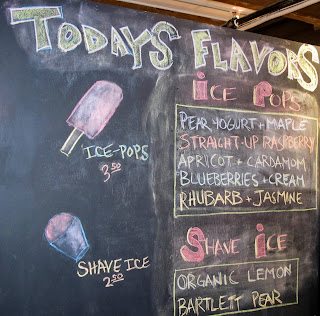 TODAYS FLAVORS
ICE POPS
PEAR YOGURT + MAPLE
STRAIGHT-UP RASPBERRY
APRICOT + CARDAMOM
BLUEBERRIES + CREAM
RHUBARB + JASMINE
ICE-POPS
3.50
SHAVE ICE
ORGANIC LEMON
BARTLETT PEAR
SHAVE ICE
2.50